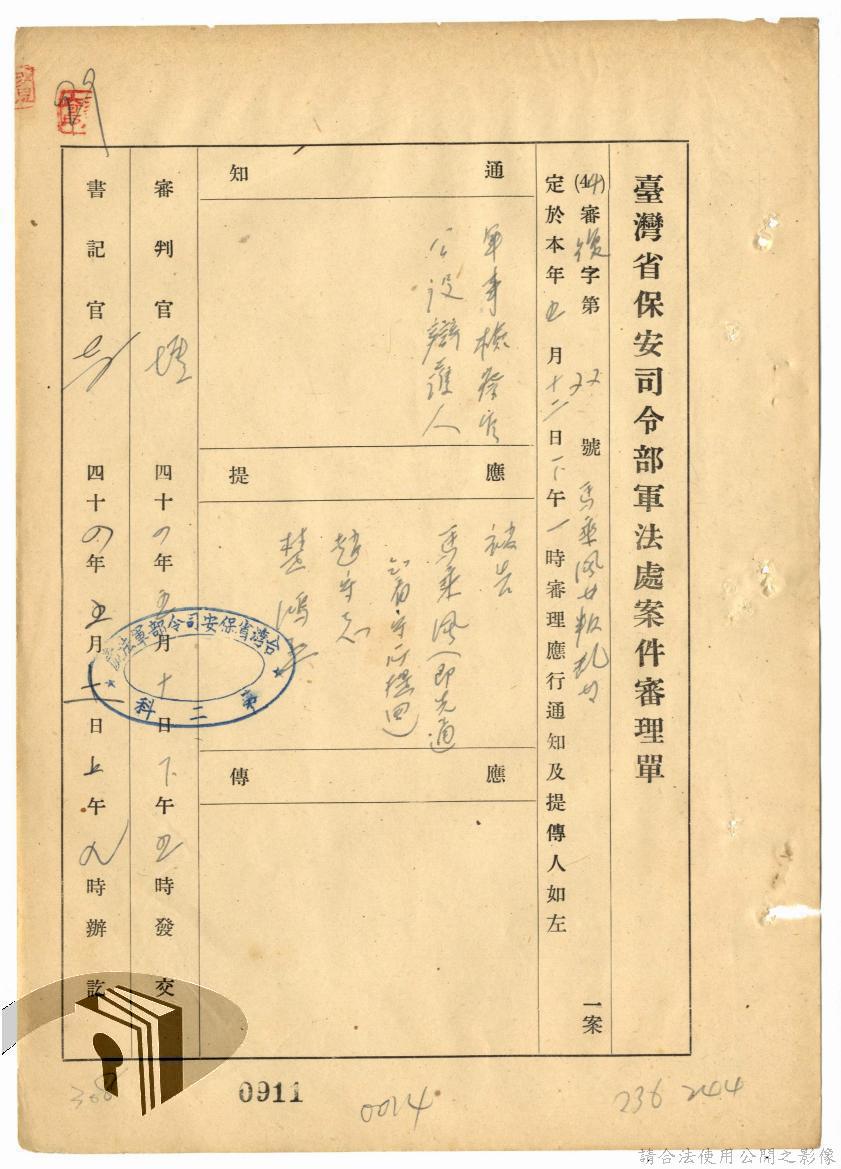 臺灣省保安司令部軍法處案件審理單
(44)審復字第 號馬乘風等叛亂 一案
定於本年五月十二日下午一時審理應行通知及提傳人如左
通知
軍事檢察官
公設辯護人
應提
被告
馬乘風(即
趙守志
楚鴻
應傳
審判官 四十四年五月十日下午五時發交
書記官 四十四年五月十一日上午九時辦訖
台湾省保安司令部軍法處
第二科
0911
0014
236 244
請合法使用公開之影像